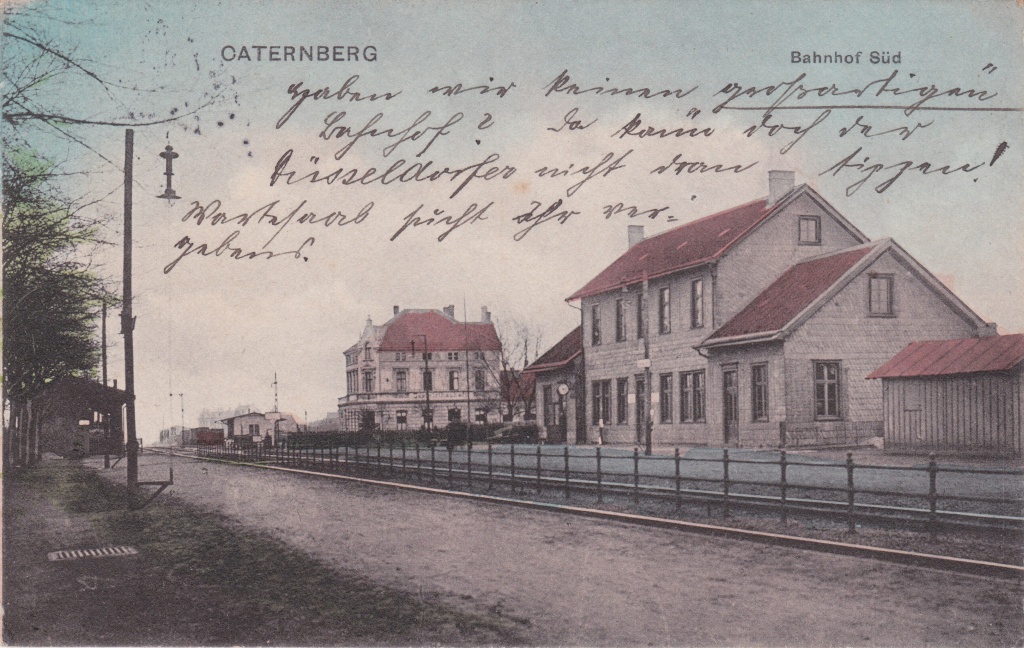 CATERNBERG
Bahnhof Süd
Haben wir keinen großartigen
Bahnhof? Da kann doch der
Düsseldorfer nicht dran tippen!
Wartesaal sucht Ihr ver-
gebens.